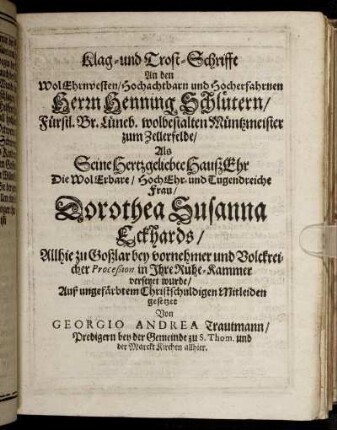 Klag-und Trost-Schrifft
An den
WolEhrnvesten/Hochachtbarn und Hocherfahrnen
Herrn Henning Schlütern/
Fürstl. Br. Lüneb. wolbestalten Müntzmeister
zum Zellerfelde/
Als
Seine Hertzgeliebte HaußEhr
Die WolErbare/ HochEhr-und Tugendreiche
Frau/
Dorothea Susanna
Eckhards/
Allhie zu Goßlar bey vornehmer und Volckrei-
cher Procession in Ihre Ruhe-Kammer
versetzet wurde/
Auß ungefärbtem Christschuldigen Mitleiden
gesetzet
Von
GEORGIO ANDREA Trautmann/
Predigern bey der Gemeinde zu S. Thom. und
der Marckt Kirchen allhier.